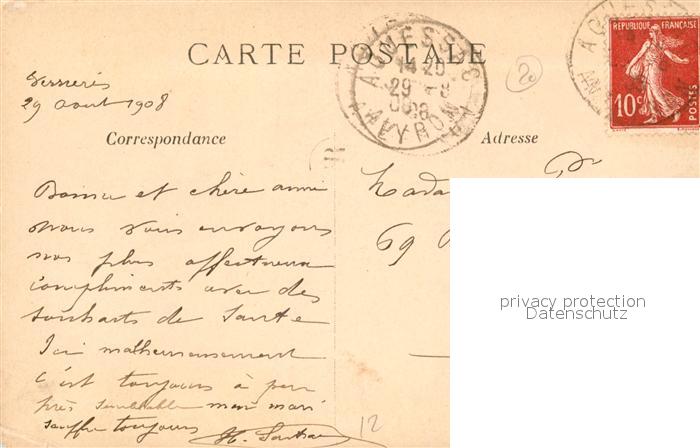 CARTE POSTALE
AGUESSAC
14 20
29 - 8
08
AVEYRON
REPUBLIQUE FRANÇAISE
10c
POSTES
20
29 Aout 1908
Correspondance
Adresse
Bonne et chère amie
nous vous envoyons
nos plus affectueux
compliments avec des
souhaits de Santé
Ici malheureusement
c'est toujours à peu
près semblable mon mari
souffre toujours
Mada
69
12
privacy protection
Datenschutz